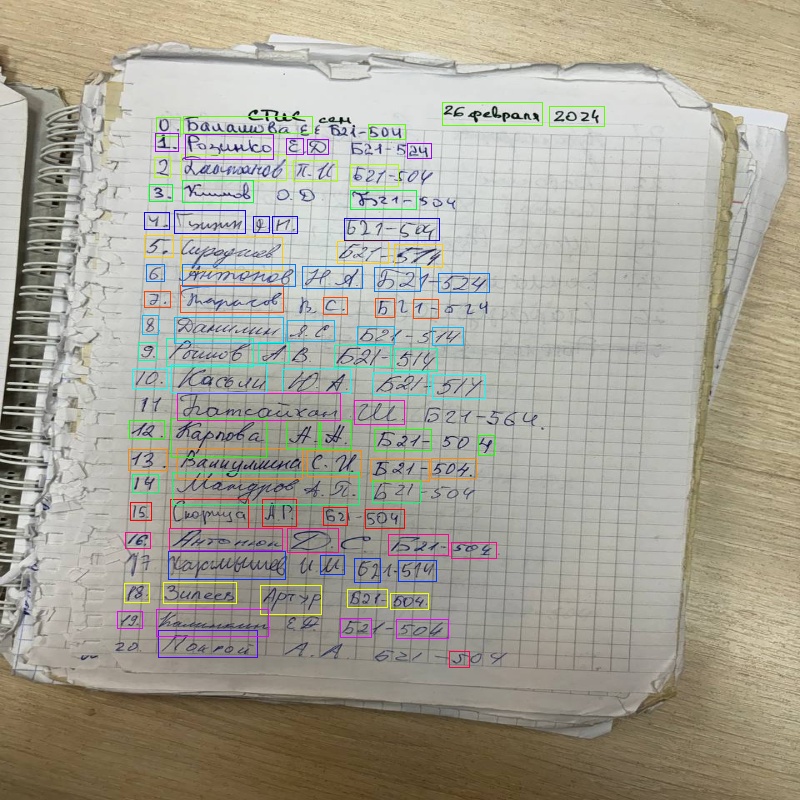 СТИС сем 26 февраля 2024
0. Балашова Е Е Б21-504
1. Розинко Е. Д Б21-524
2 П. И Б21-504
3. Климов О.Д Б21-504
4. И. Б21-504
5. Б21-514
6. Антонов Н.А Б21-524
7. Тарасов В. С. Б21-524
8. Данилин Я.С Б21-514
9. А В. Б21-514
10. Касьли Ю А. Б21-514
11 Батсайхан Ш. Б21-564.
12. Карпова А. А. Б21-504
13. Валиуллина С. И. Б21-504.
14 Мандров А. П. Б21-504
15. Скорица А.Г. Б21-504
16. Антонюк Д. С. Б21-504
17 Хармышев И И Б21-514
18. Зилеев Артур Б21-504.
19. Калинкин Е.Д. Б21-504
20. А.А. Б21-504